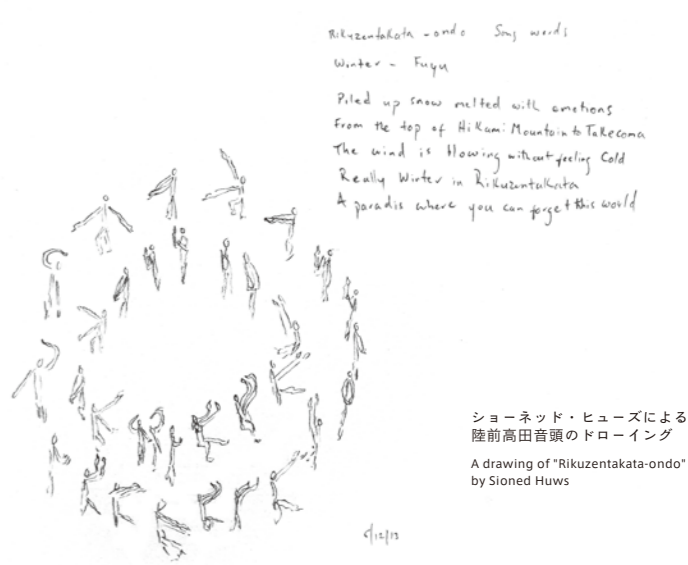 Rikuzentakata - ondo Song words
Winter - Fuyu
Piled up snow melted with emotions
From the top of Hikami Mountain to Takecoma
The wind is blowing without feeling Cold
Really Winter in Rikuzentakata
A paradis where you can forget this world
ショーネッド・ヒューズによる
陸前高田音頭のドローイング
A drawing of "Rikuzentakata-ondo"
by Sioned Huws
6/12/13